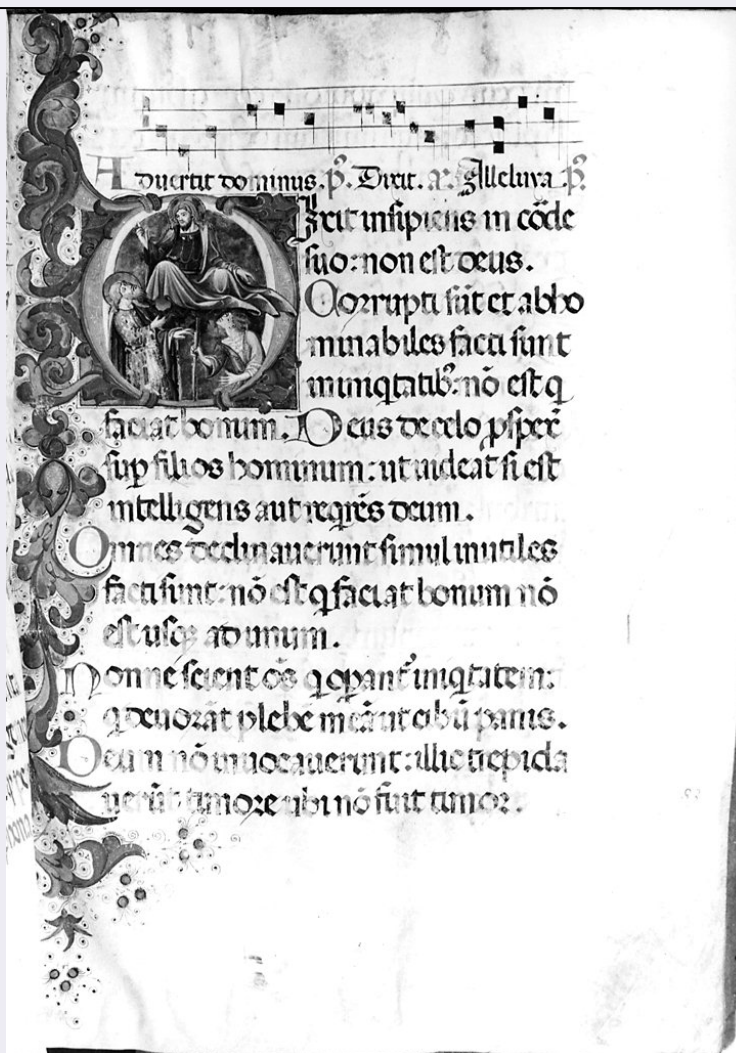 Advertit dominus. p̃. Dixit. a. Alleluya p̃.
Dixit insipiens in cõde
suo: non est deus.
Corrupti sũt et abho
minabiles facti sunt
in iniqtatib: nõ est q
faciat bonum. Deus de celo pspex̃
sup filios hominum: ut uideat si est
intelligens aut reqrẽs deum.
Omnes declinauerunt simul inutiles
facti sunt: nõ est q faciat bonum nõ
est usq ad unum.
Nonne scient oẽs q opant̃ iniqtatem:
q deuorãt plebẽ meã ut cibũ panis.
Deum nõ inuocauerunt: illic trepida
uerũt timore ubi nõ fuit timor.